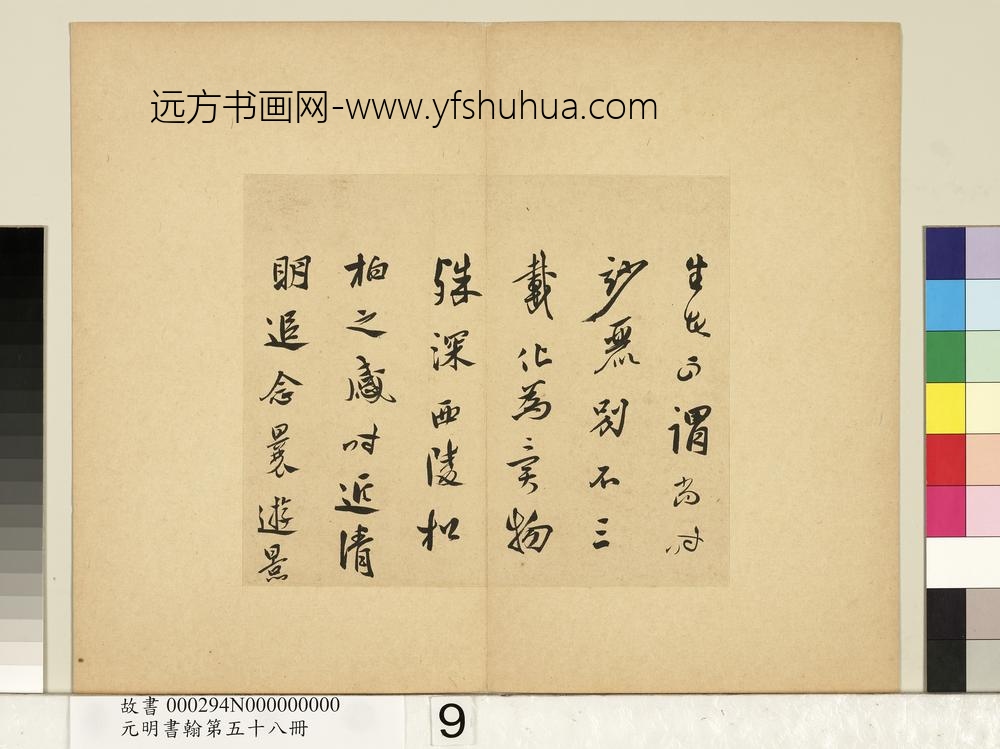 远方书画网-www.yfshuhua.com
生謂尚时
妙麗別不三
載化為異物
殊深西陵松
柏之感时近清
明追念曩遊景
故書 000294N000000000
元明書翰第五十八冊
9